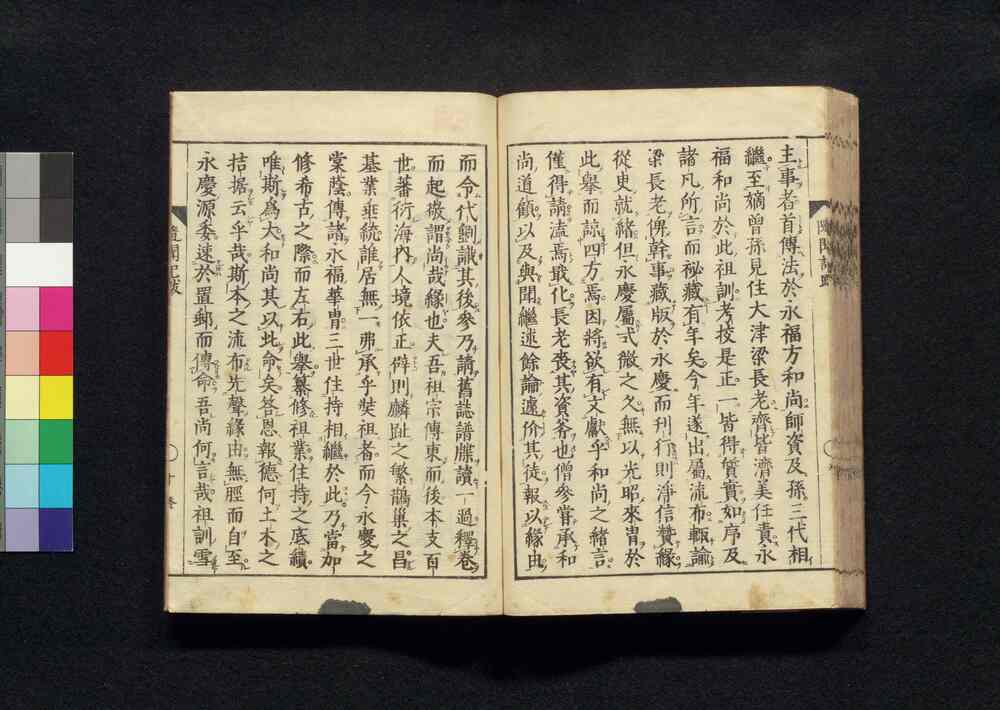 主事者首傳法於永福方和尚師資及孫三代相
繼至嫡曾孫見住大津梁長老齊皆濟美任責永
福和尚於此祖訓考挍是正一皆得質實如序及
諸凡所言而祕藏有年矣今年遂出屬流布輙諭
梁長老俾幹事藏版於永慶而刊行則淨信贊緣
從臾就緒但永慶屬式微之久無以光昭來胄於
此舉而諒四方焉因將欲有文獻乎和尚之緒言
僅得請焉戢化長老喪其資斧也僧參嘗承和
尚道顧以及與聞繼述餘論遽价其徒報以緣由
而今代劂識其後參乃請舊誌譜牒讀一過釋卷
而起敬謂尚哉緣也夫吾祖宗傳東而後本支百
世蕃衍海內人境依正僻則麟趾之繁鵲巢之昌
基業垂統誰居無一弗承乎奘祖者而今永慶之
棠蔭傳諸永福華胄三世住持相繼於此乃當加
修希古之際而左右此舉纂修祖業住持之底績
唯斯爲大和尚其以此命矣答恩報德何土木之
拮据云乎哉斯本之流布先聲緣由無脛而自至
永慶源委速於置郵而傳命吾尚何言哉祖訓雪
隨聞記跋